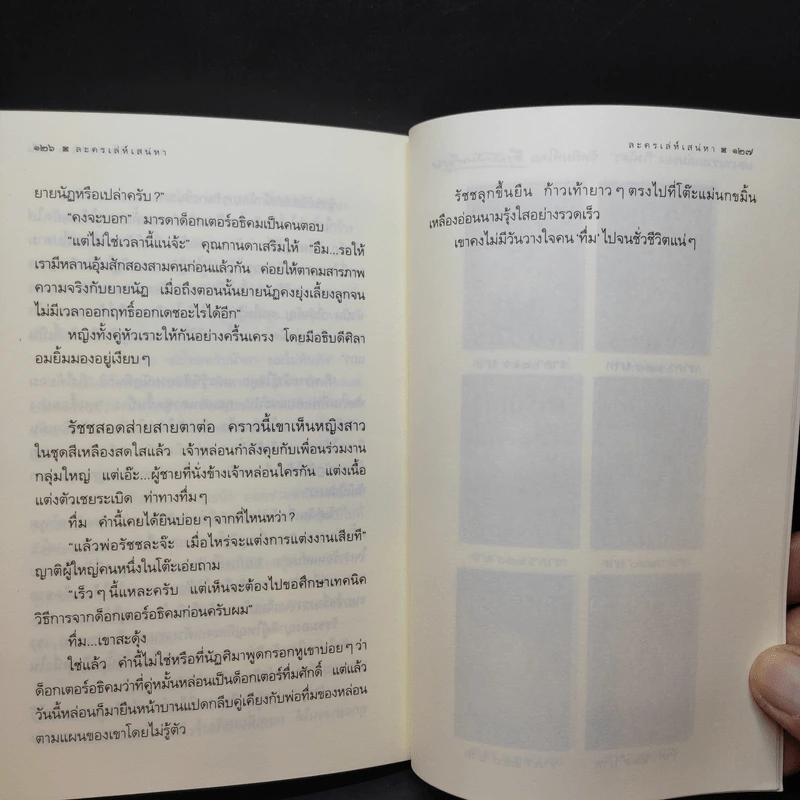 ๑๒๖ ※ ละครเล่ห์เสน่หา
ยายนัฏหรือเปล่าครับ?"
"คงจะบอก" มารดาด็อกเตอร์อธิคมเป็นคนตอบ
"แต่ไม่ใช่เวลานี้แน่จ้ะ" คุณกานดาเสริมให้ "อืม...รอให้
เรามีหลานอุ้มสักสองสามคนก่อนแล้วกัน ค่อยให้ตาคมสารภาพ
ความจริงกับยายนัฏ เมื่อถึงตอนนั้นยายนัฏคงยุ่งเลี้ยงลูกจน
ไม่มีเวลาออกฤทธิ์ออกเดชอะไรได้อีก"
หญิงทั้งคู่หัวเราะให้กันอย่างครื้นเครง โดยมีอธิบดีศิลา
อมยิ้มมองอยู่เงียบๆ
รัชชสอดส่ายสายตาต่อ คราวนี้เขาเห็นหญิงสาว
ในชุดสีเหลืองสดใสแล้ว เจ้าหล่อนกำลังคุยกับเพื่อนร่วมงาน
กลุ่มใหญ่ แต่เอ๊ะ...ผู้ชายที่นั่งข้างเจ้าหล่อนใครกัน แต่งเนื้อ
แต่งตัวเชยระเบิด ท่าทางทึ่มๆ
ทึ่ม คำนี้เคยได้ยินบ่อยๆจากที่ไหนหว่า?
"แล้วพ่อรัชชละจ๊ะ เมื่อไหร่จะแต่งการแต่งงานเสียที"
ญาติผู้ใหญ่คนหนึ่งในโต๊ะเอ่ยถาม
"เร็วๆนี้แหละครับ แต่เห็นจะต้องไปขอศึกษาเทคนิค
วิธีการจากด็อกเตอร์อธิคมก่อนครับผม"
ทึ่ม...เขาสะดุ้ง
ใช่แล้ว คำนี้ไม่ใช่หรือที่นัฏศิมาพูดกรอกหูเขาบ่อยๆว่า
ด็อกเตอร์อธิคมว่าที่คู่หมั้นหล่อนเป็นด็อกเตอร์ทึ่มศักดิ์ แต่แล้ว
วันนี้หล่อนก็มายืนหน้าบานแปดกลีบคู่เคียงกับพ่อทึ่มของหล่อน
ตามแผนของเขาโดยไม่รู้ตัว
ละครเล่ห์เสน่หา ※ ๑๒๗
รัชชลุกขึ้นยืน ก้าวเท้ายาวๆตรงไปที่โต๊ะแม่นกขมิ้น
เหลืองอ่อนนามรุ้งใสอย่างรวดเร็ว
เขาคงไม่มีวันวางใจคน 'ทึ่ม' ไปจนชั่วชีวิตแน่ๆ